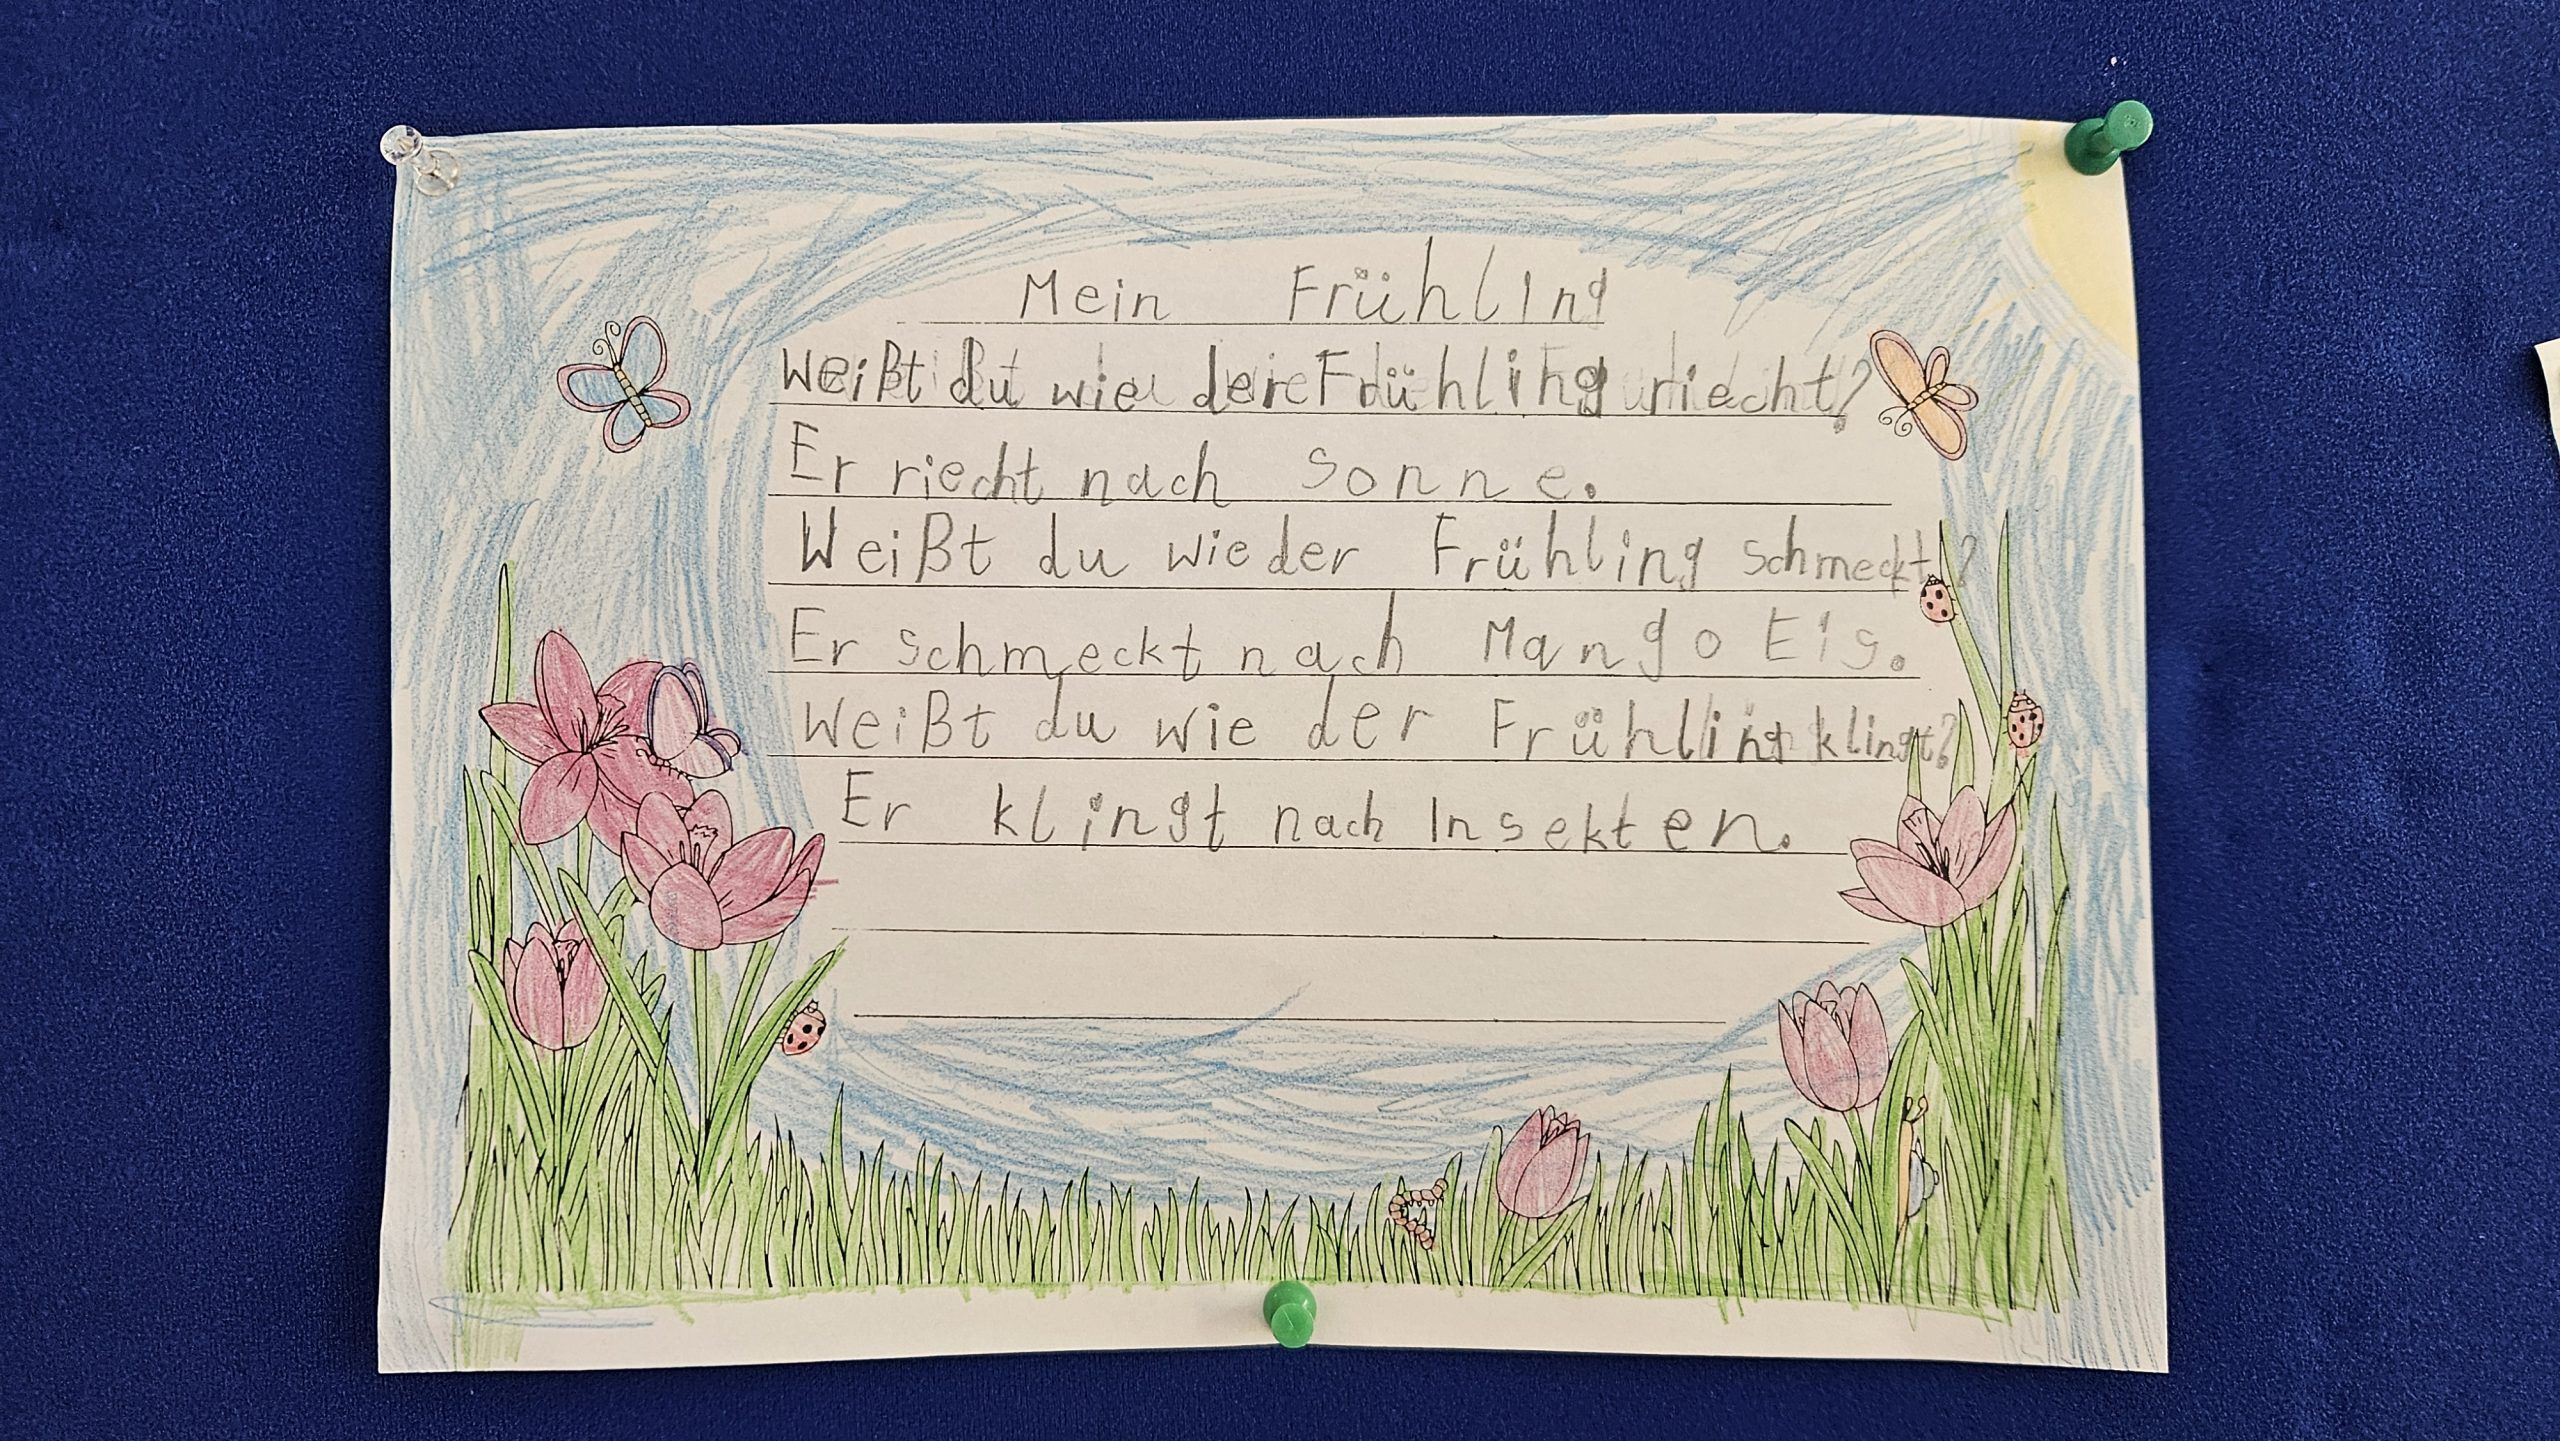 Mein Frühling
Weißt du wie der Frühling riecht?
Er riecht nach Sonne.
Weißt du wie der Frühling schmeckt?
Er schmeckt nach Mango Eis.
Weißt du wie der Frühling klingt?
Er klingt nach Insekten.